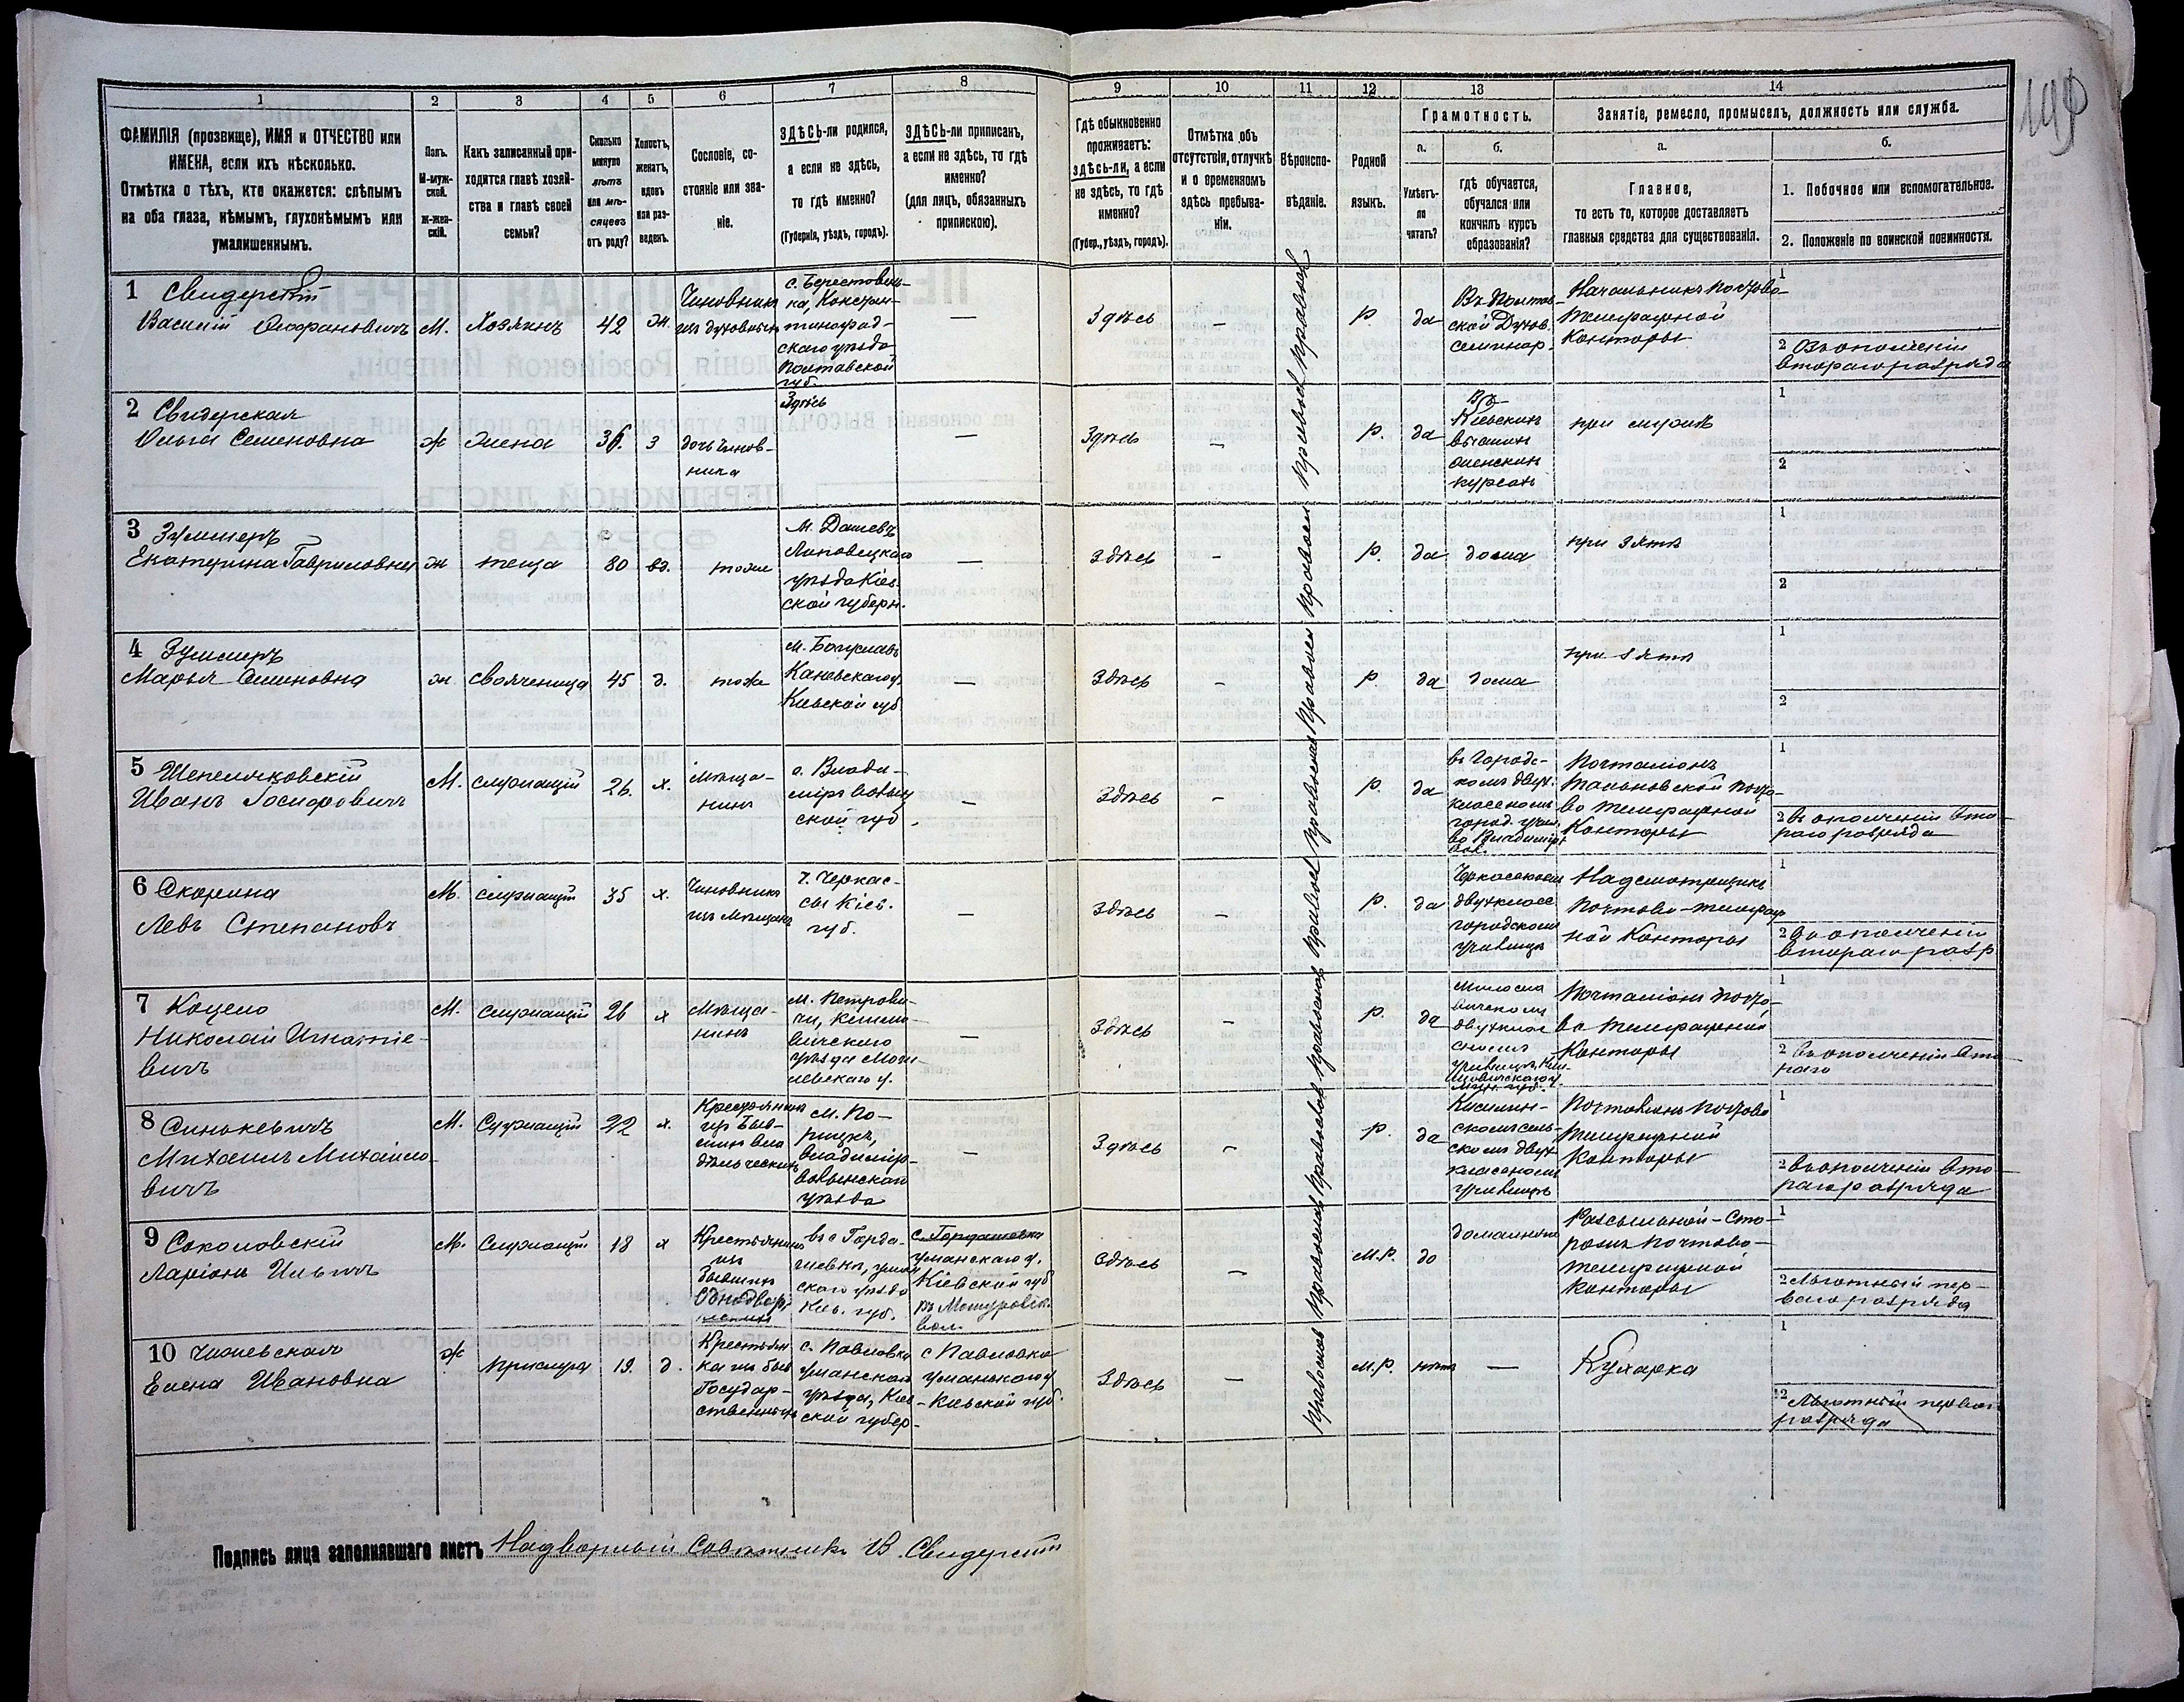 199
1
2
3
4
5
6
7
8
9
10
11
12
13
14
ФАМИЛІЯ (прозвище), ИМЯ и ОТЧЕСТВО или
ИМЕНА, если ихъ нѣсколько.
Отмѣтка о тѣхъ, кто окажется: слѣпымъ
на оба глаза, нѣмымъ, глухонѣмымъ или
умалишеннымъ.
Полъ.
М-муж-
ской.
Ж-жен-
скій.
Какъ записанный при-
ходится главѣ хозяй-
ства и главѣ своей
семьи?
Сколько
минуло
лѣтъ
или мѣ-
сяцевъ
отъ роду?
Холостъ,
женатъ,
вдовъ
или раз-
веденъ.
Сословіе, со-
стояніе или зва-
ніе.
ЗДѢСЬ-ли родился,
а если не здѣсь,
то гдѣ именно?
(Губернія, уѣздъ, городъ).
ЗДѢСЬ-ли приписанъ,
а если не здѣсь, то гдѣ
именно?
(для лицъ, обязанныхъ
припискою).
Гдѣ обыкновенно
проживаетъ:
здѣсь-ли, а если
не здѣсь, то гдѣ
именно?
(Губер., уѣздъ, городъ).
Отмѣтка объ
отсутствіи, отлучкѣ
и о временномъ
здѣсь пребыва-
ніи.
Вѣроиспо-
вѣданіе.
Родной
языкъ.
Грамотность.
а.
Умѣетъ-
ли
читать?
б.
гдѣ обучается,
обучался или
кончилъ курсъ
образованія?
Занятіе, ремесло, промыселъ, должность или служба.
а.
Главное,
то есть то, которое доставляетъ
главныя средства для существованія.
б.
1. Побочное или вспомогательное.
2. Положеніе по воинской повинности.
1 Свидерскій
Василій
М.
Хозяинъ
42
ж.
Чиновникъ
изъ духовныхъ
с. Берестовень-
ка, Констан-
тиноград-
скаго уѣзда
Полтавской
губ.
—
Здѣсь
—
Православ
р.
да
Въ Полтав-
ской Духов.
семинар.
Начальникъ Почтово-
Телеграфной
Конторы
1
2 Въ ополченіи
втораго разряда
2 Свидерская
Ольга Семеновна
ж
жена
36.
з
дочь чинов-
ника
Здѣсь
—
Здѣсь
—
Правосл
р.
да
На
Кіевскихъ
высшихъ
женскихъ
курсахъ
при мужѣ
1
2
3
Екатерина Гавриловна
ж
теща
80
вд.
тоже
м. Дашевъ
Липовецкаго
уѣзда Кіев-
ской губерн.
—
Здѣсь
—
р.
да
дома
при зятѣ
1
2
4
Марья Семеновна
ж
свояченица
45
д.
тоже
м. Богуславъ
Каневскаго у.
Кіевской губ
—
Здѣсь
—
р.
да
дома
при зятѣ
1
2
5
Иванъ Іосифовичъ
М.
служащій
26.
х.
мѣща-
нинъ
г. Влади-
міръ Волын
ской губ.
—
Здѣсь
—
р.
да
въ Городс-
комъ двух-
классномъ
город. учил.
во Владимірѣ
Вол.
Почталіонъ
Тальновской Почто-
во Телеграфной
Конторы
1
2 въ ополченіи вто-
раго разряда
6 Скорина
Левъ Степановъ
М.
служащій
35
х.
Чиновникъ
изъ мѣщанъ
г. Черкас-
сы Кіев.
губ.
—
Здѣсь
—
р.
да
Черкасскомъ
двухкласс
городскомъ
училищѣ
Надсмотрщикъ
Почтово-телеграф
ной Конторы
1
2 Въ ополченіи
втораго разр
7 Коцело
Николай Игнатіе-
вичъ
М.
служащій
26
х
Мѣща-
нинъ
м. Петрови-
чи, Климо-
вичского
уѣзда Моги-
левскаго у.
—
Здѣсь
—
р.
да
Почталіонъ Почто-
во Телеграфной
Конторы
1
2 Въ ополченіи вто
раго
8 Синкевичъ
Михаилъ Михайло-
вичъ
М.
Служащій
22
х.
Крестьянинъ
изъ Быв-
шихъ вла
дѣльческихъ
м. По-
рицкъ,
Владимір-
волынскаго
уѣзда
—
Здѣсь
—
р.
да
скомъ сель-
скомъ двух
классномъ
училищѣ
Почталіонъ Почтово
Телеграфной
Конторы
1
2 въ ополченіи вто-
раго разряда
9 Соколовскій
Ларіонъ Ильичъ
М.
Служащій
18
х
Крестьянинъ
изъ
бывшихъ
Однодвор-
с. Гордашовка
уманскаго у.
Кіевской губ
вол.
Здѣсь
—
М.р.
да
домашнее
Разсыльной-Сто-
рожъ Почтово-
Телеграфной
Конторы
1
2 Льготный пер-
ваго разряда
10
Елена Ивановна
ж
прислуга
19.
д.
Крестьян
ка изъ быв
Государ-
ственныхъ
с. Павловка
уманскаго
уѣзда, Кіев-
ской губер-
с Павловка
уманскаго у
Кіевской губ.
Здѣсь
—
Православ
М.р.
нѣтъ
—
Кухарка
1
2 Льготный перваго
разряда
Подпись лица заполнявшаго листъ Надворный Совѣтникъ В. Свидерскій